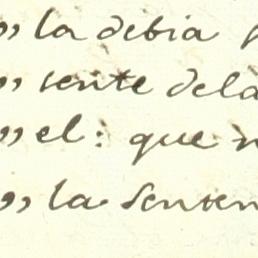 ” la debia
” sente dela
” el: que
” la Senten